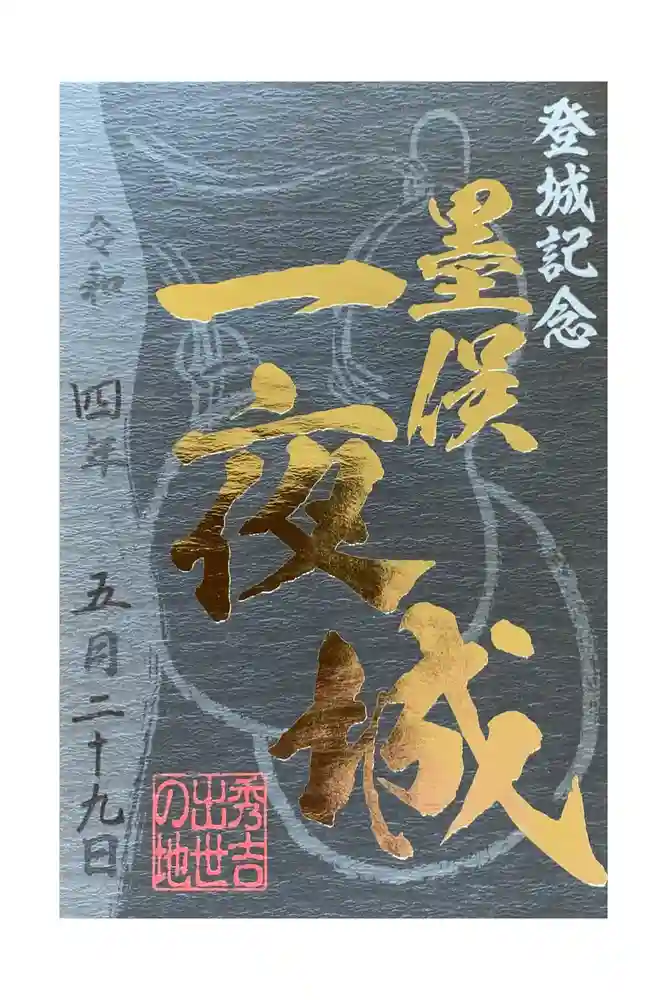 登城記念
墨俣
一夜城
秀吉
出世
の地
令和 四年 五月二十九日